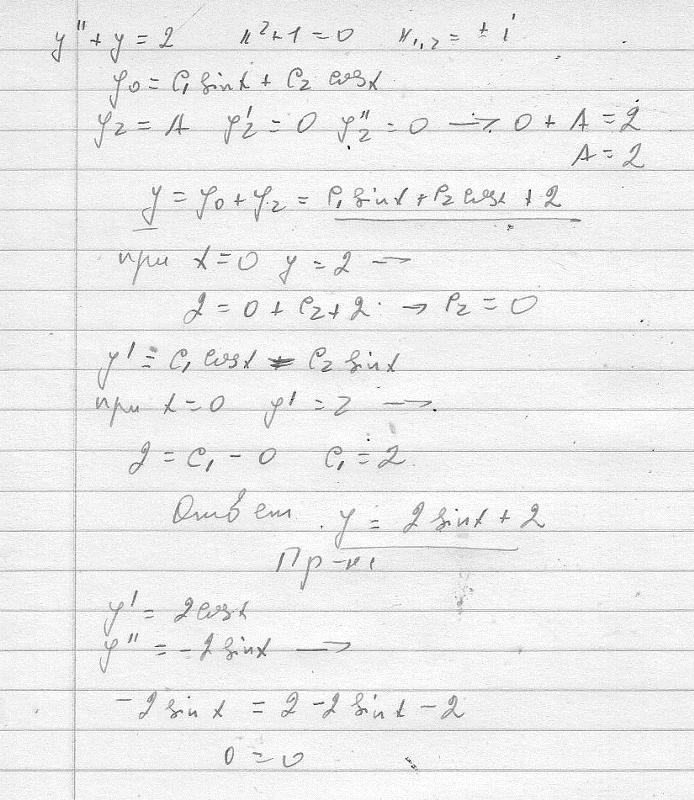 y'' + y = 2 k² + 1 = 0 k₁,₂ = ± i
y₀ = C₁ sinx + C₂ cosx
y₂ = A y₂' = 0 y₂'' = 0 → 0 + A = 2
A = 2
y = y₀ + y₂ = C₁ sinx + C₂ cosx + 2
при x = 0 y = 2 →
2 = 0 + C₂ + 2 → C₂ = 0
y' = C₁ cosx - C₂ sinx
при x = 0 y' = 2 →
2 = C₁ - 0 C₁ = 2
Ответ y = 2 sinx + 2
Пр-ка
y' = 2cosx
y'' = -2 sinx →
-2 sin x = 2 - 2 sinx - 2
0 = 0